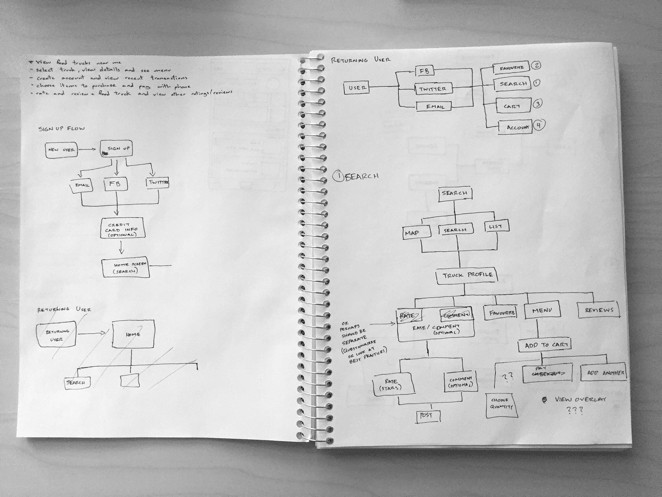 * VIEW FOOD TRUCKS NEAR ME
- SELECT TRUCK, VIEW DETAILS AND SEE MENU
- CREATE ACCOUNT AND VIEW RECENT TRANSACTIONS
- CHOOSE ITEMS TO PURCHASE AND PAY WITH PHONE
- RATE AND REVIEW A FOOD TRUCK AND VIEW OTHER RATINGS/REVIEWS
SIGN UP FLOW
NEW USER
SIGN UP
EMAIL
FB
TWITTER
CREDIT
CARD INFO
(OPTIONAL)
HOME SCREEN
(SEARCH)
RETURNING USER
RETURNING
USER
HOME
SEARCH
RETURNING USER
USER
FB
TWITTER
EMAIL
FAVOURITE 2
SEARCH 1
CART 3
ACCOUNT 4
1 SEARCH
SEARCH
MAP
SEARCH
LIST
TRUCK PROFILE
RATE
COMMENT
FAVOURITE
MENU
REVIEWS
RATE/COMMENT
(OPTIONAL)
OR
PERHAPS
SHOULD BE
SEPARATE
(QUESTIONNAIRE
OR LOOK AT
BEST PRACTICES)
ADD TO CART
RATE
(STARS)
COMMENT
(OPTIONAL)
POST
??
CHOOSE
QUANTITY
PAY
ADD ANOTHER
VIEW OVERLAY
???